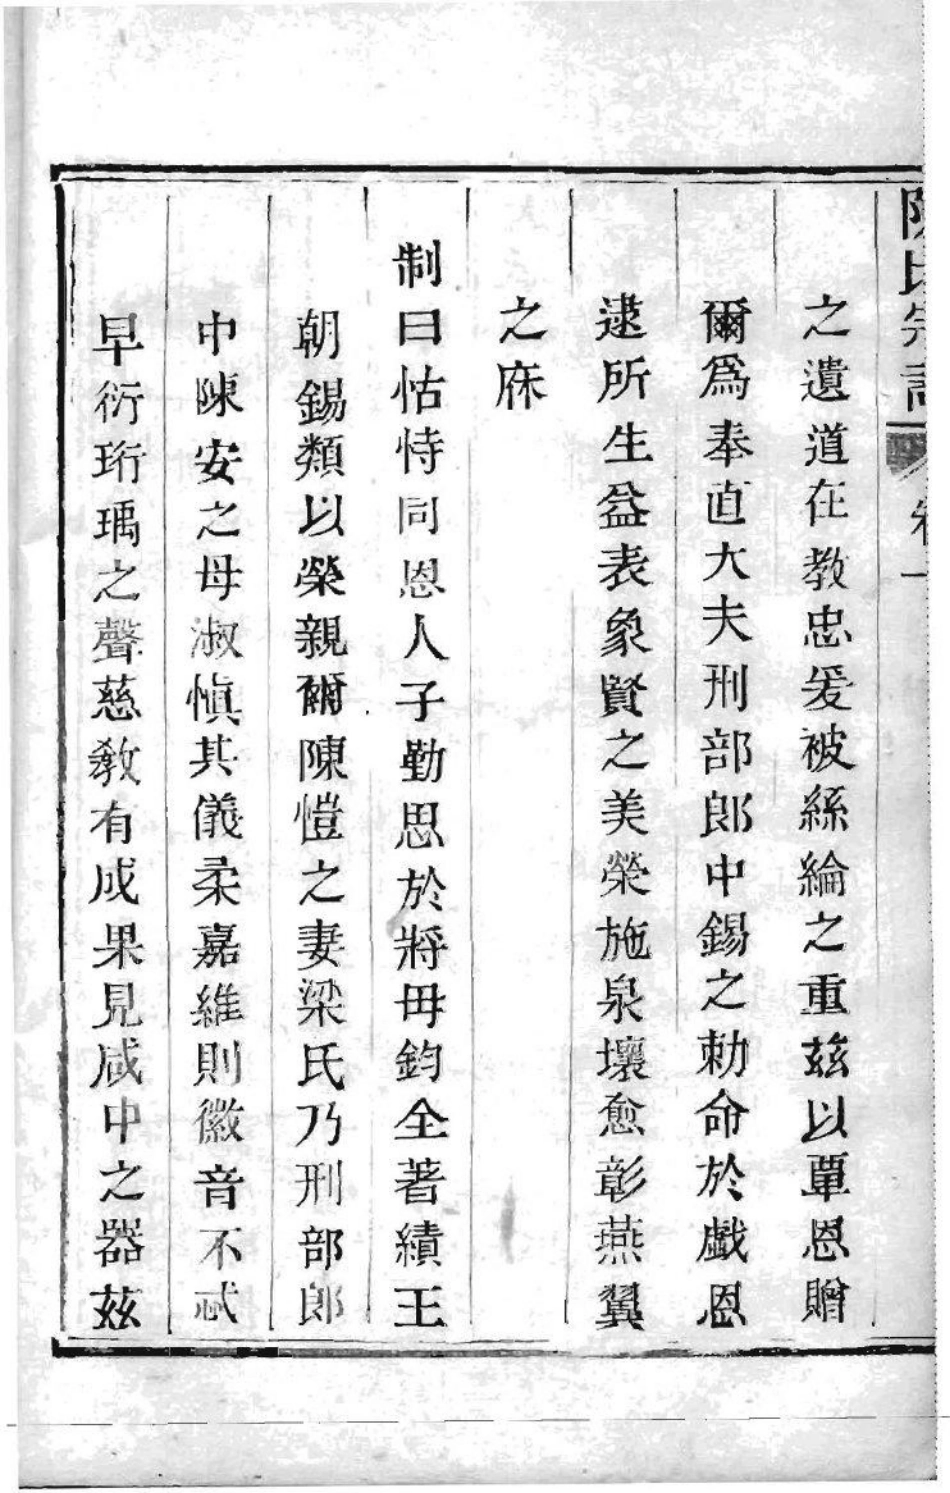 陳氏宗譜 卷一
之遺道在教忠爰被絲綸之重茲以覃恩贈
爾爲奉直大夫刑部郎中錫之勅命於戲恩
逮所生益表象賢之美榮施泉壤愈彰燕翼
之庥
制曰怙恃同恩人子勤思於將毋鈞全著績王
朝錫類以榮親爾陳愷之妻梁氏乃刑部郎
中陳安之母淑愼其儀柔嘉維則徽音不忒
早衍珩瑀之聲慈敎有成果見成中之器玆